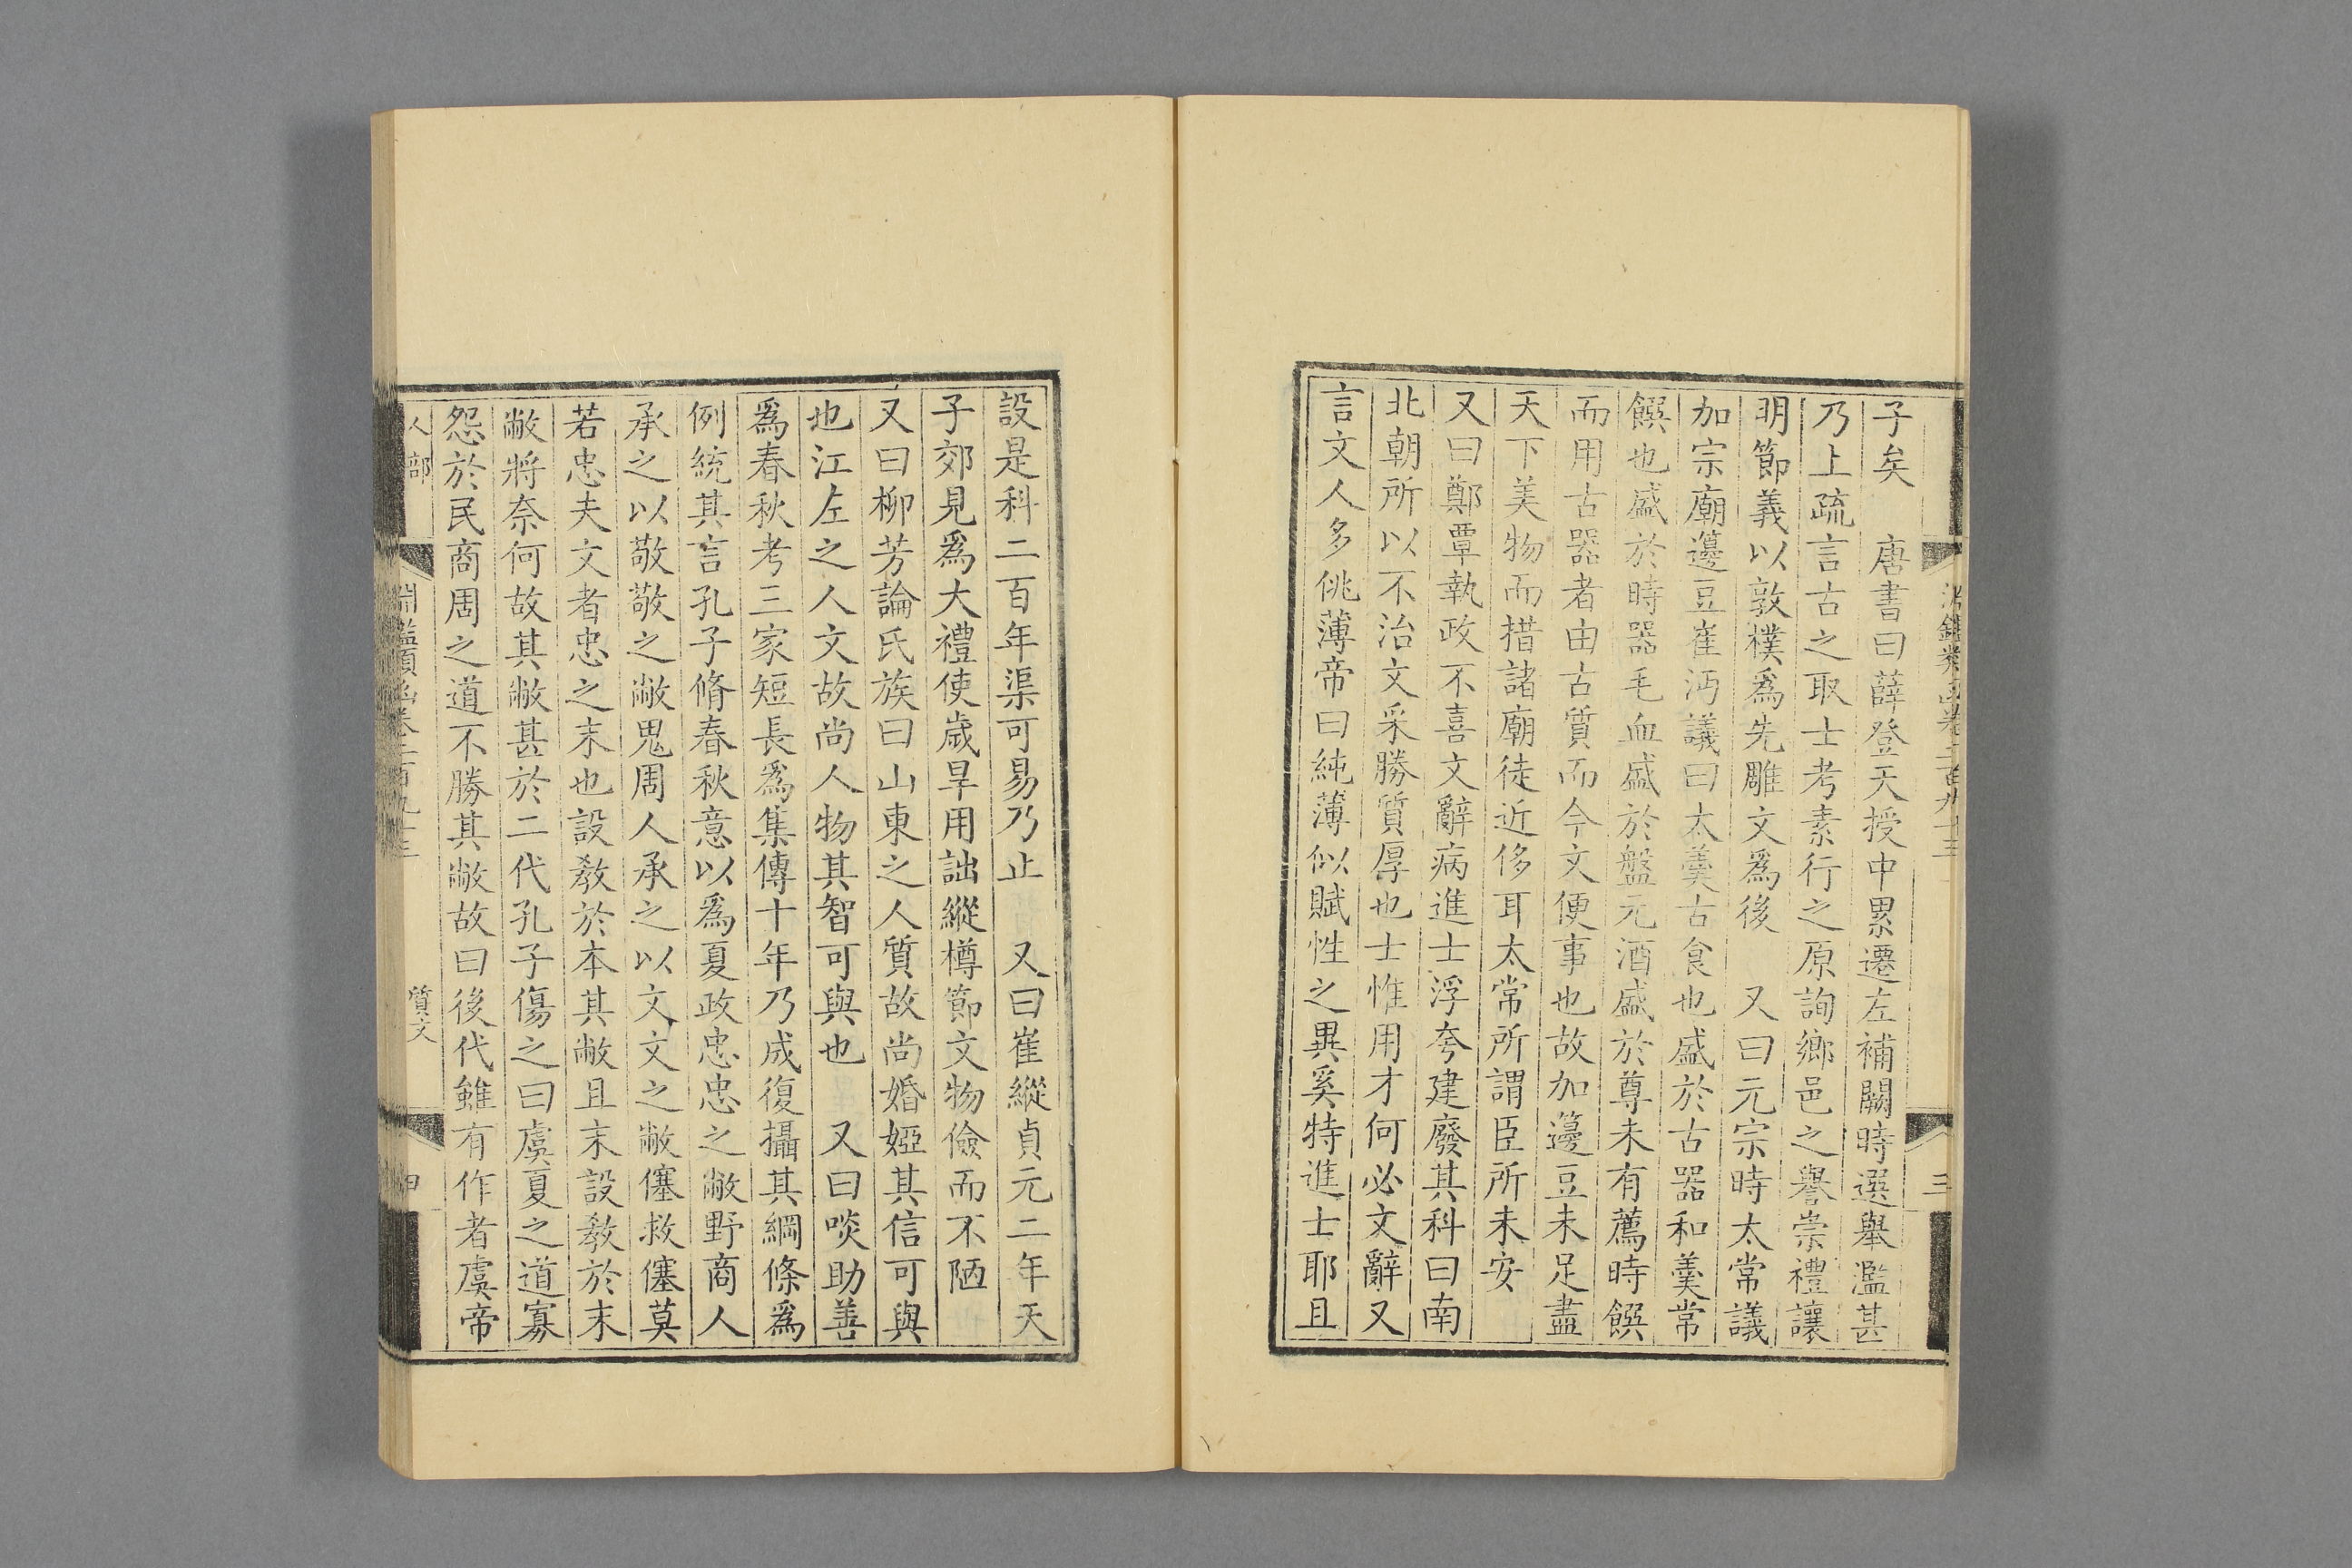 子矣 唐書曰薛登天授中累遷左補闕時選舉濫甚
乃上疏言古之取士考素行之原詢鄉邑之譽崇禮讓
明節義以敦樸爲先雕文爲後 又曰元宗時太常議
加宗廟籩豆崔沔議曰太羹古食也盛於古器和羹常
饌也盛於時器毛血盛於盤元酒盛於尊未有薦時饌
而用古器者由古質而今文便事也故加籩豆未足盡
天下美物而措諸廟徒近侈耳太常所謂臣所未安
又曰鄭覃執政不喜文辭病進士浮夸建廢其科曰南
北朝所以不治文采勝質厚也士惟用才何必文辭又
言文人多佻薄帝曰純薄似賦性之異奚特進士耶且
設是科二百年渠可易乃止 又曰崔縱貞元二年天
子郊見爲大禮使歲旱用詘縱樽節文物儉而不陋
又曰柳芳論氏族曰山東之人質故尚婚婭其信可與
也江左之人文故尚人物其智可與也 又曰啖助善
爲春秋考三家短長爲集傳十年乃成復攝其綱條爲
例統其言孔子脩春秋意以爲夏政忠忠之敝野商人
承之以敬敬之敝鬼周人承之以文文之敝僿救僿莫
若忠夫文者忠之末也設教於本其敝且末設教於末
敝將奈何故其敝甚於二代孔子傷之曰虞夏之道寡
怨於民商周之道不勝其敝故曰後代雖有作者虞帝
人部
淵鑑類函卷二百九十三
質文
三